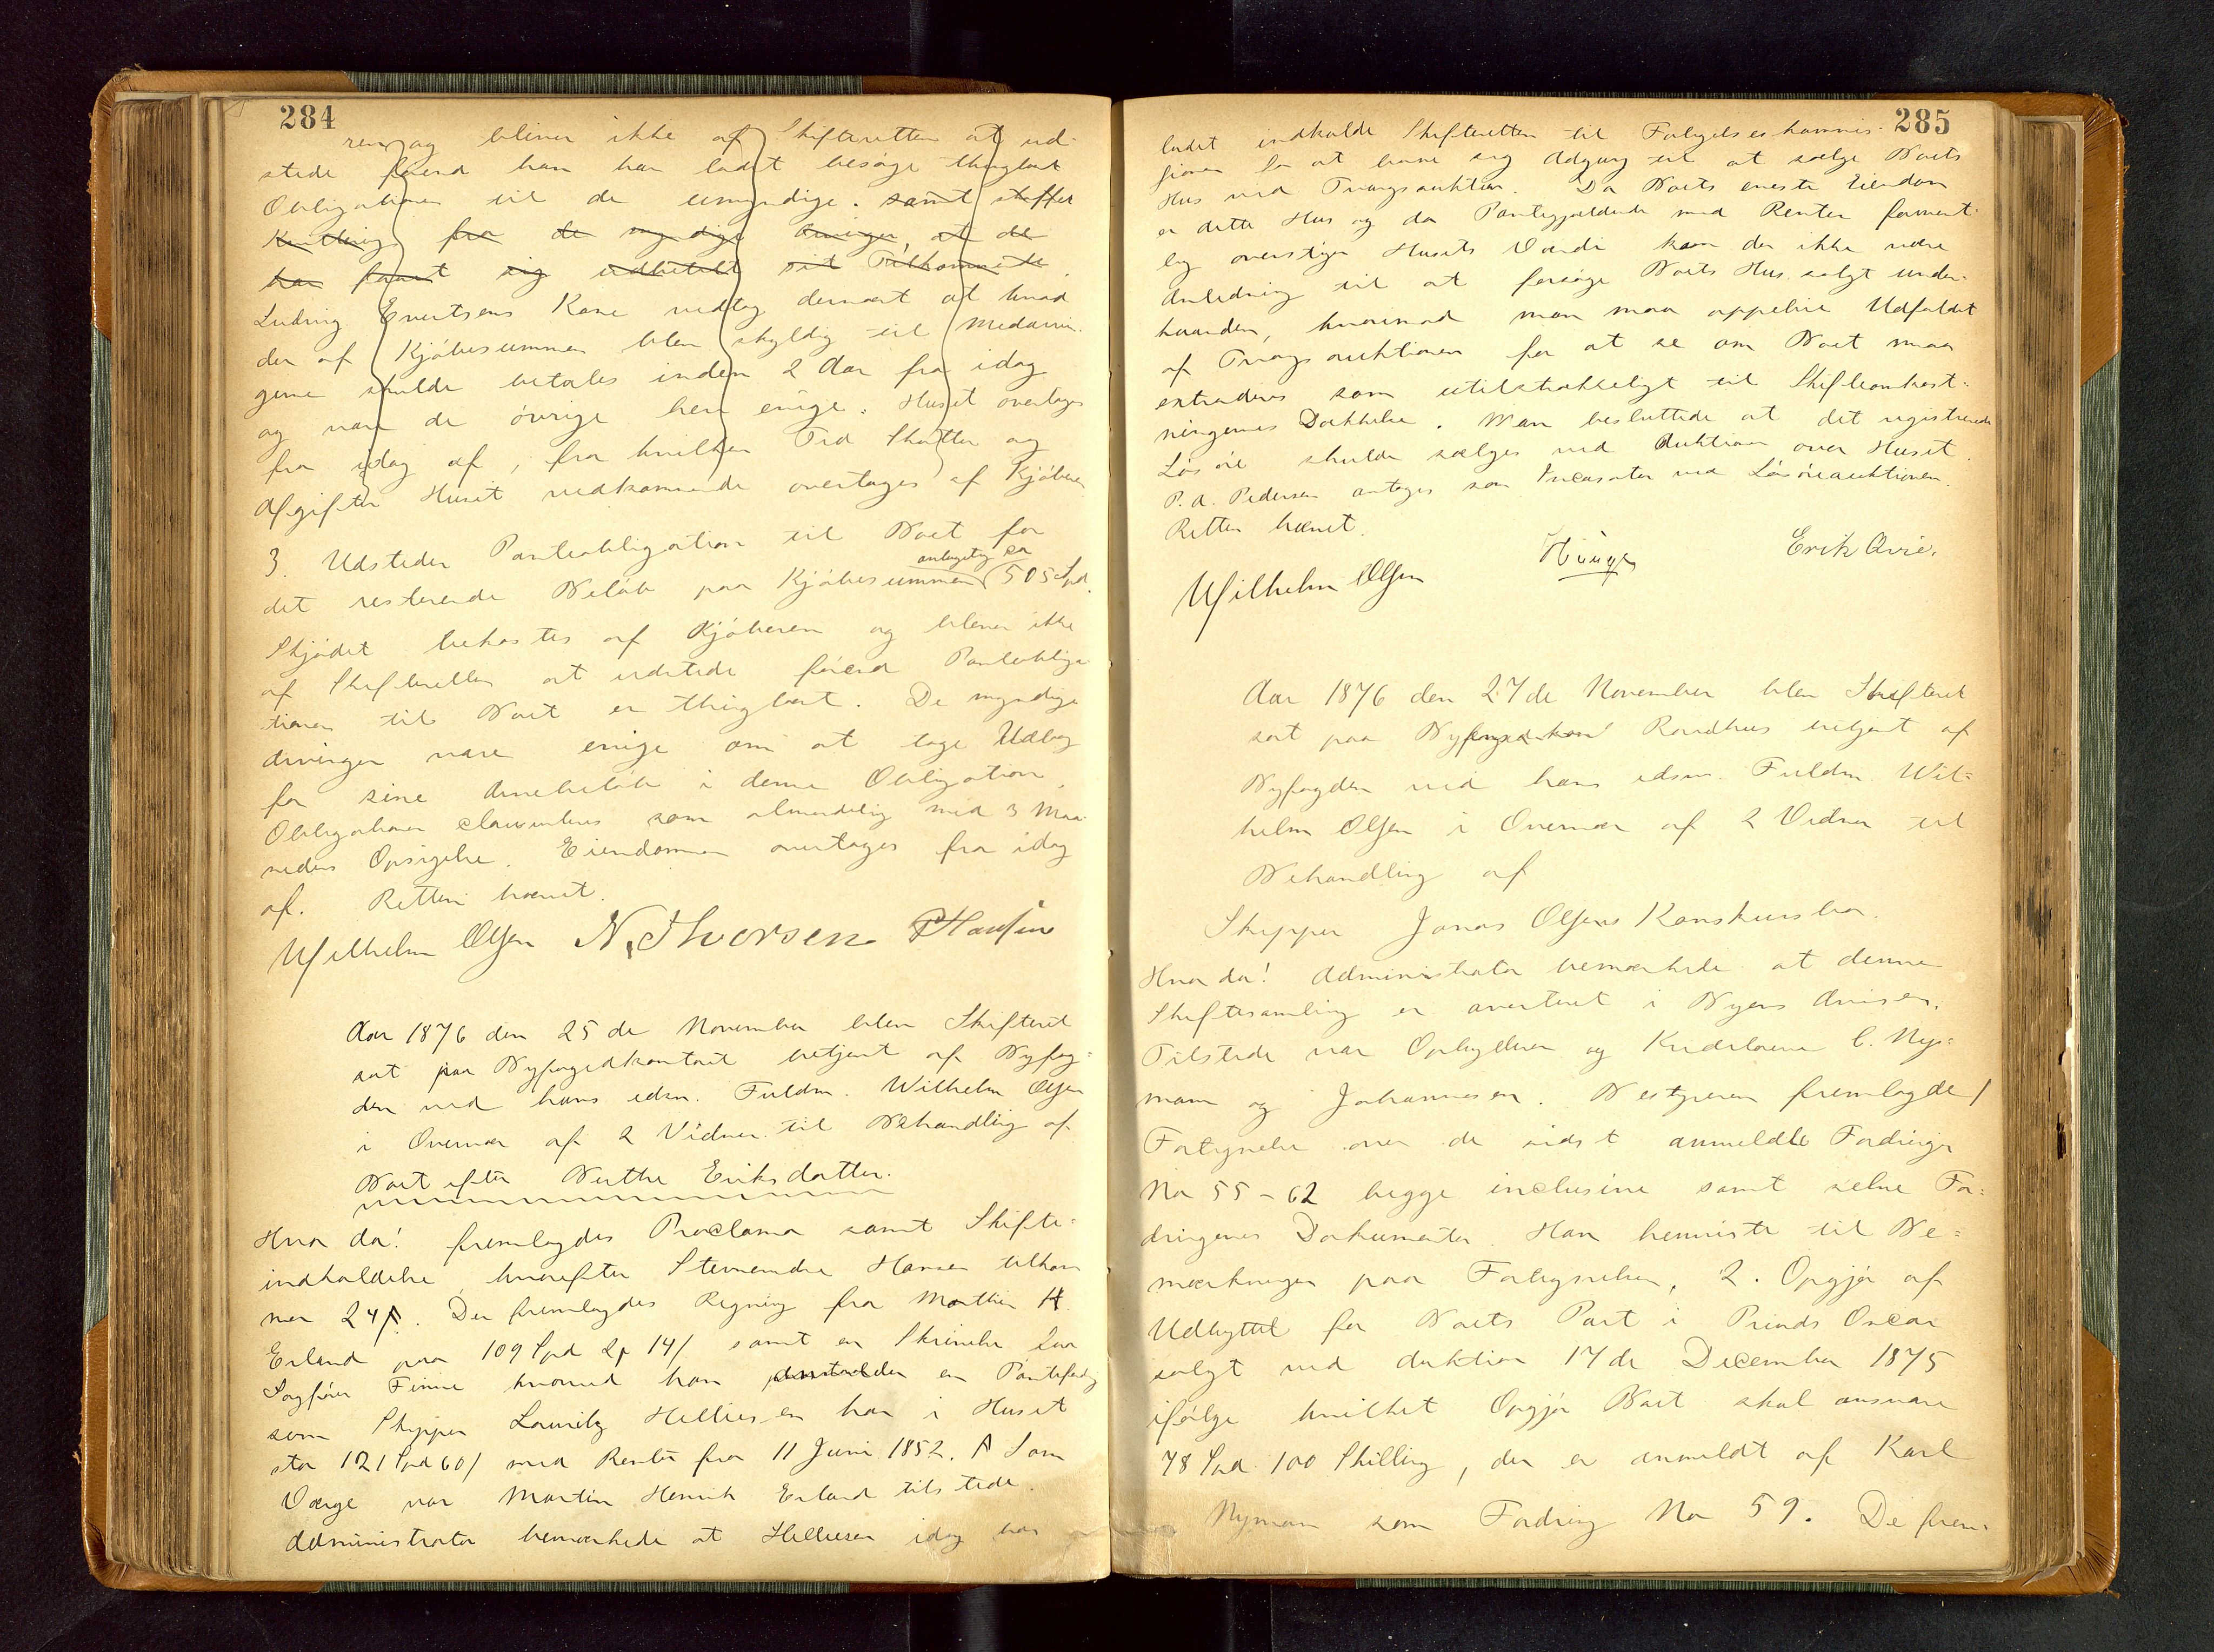 284
ren og bliver ikke af Skifteretten at ud-
stede förend han har ladet besöge thinglæst
Obligationen til de umyndige. samt skaffet
Kvittering fra de myndige Arvinger, at de
har faaet sig udbetalt sit Tilkommende.
Ludvig Evertsens Kone vedtog dernæst at hvad
der af Kjöbesummen blev skyldig til Medarvin-
gerne skulde betales inden 2 Aar fra idag
og vare de övrige heri enige. Huset overtages
fra idag af, fra hvilken Tid Skatter og
Afgifter Huset vedkommende overtages af Kjöberen
3. Udsteder Panteobligation til Boet for
det resterende Belöb paa Kjöbesummen antagelig ca 505 Spd.
Skjödet bekostes af Kjöberen og bliver ikke
af Skifteretten at udstede förend Panteobliga-
tionen til Boet er thinglæst. De myndige
Arvinger vare enige om at tage Udlæg
for sine Arvebelöb i denne Obligation.
Obligationen clausuleres som almindelig med 3 Maa-
neders Opsigelse. Eiendommen overtages fra idag
af. Retten hævet.
Wilhelm Olsen N. Thorsen P Hansen
Aar 1876 den 25de November blev Skifteret
sat paa Byfogedkontoret betjent af Byfog-
den ved hans edsv. Fuldm. Wilhelm Olsen
i Overvær af 2 Vidner til Behandling af
Boet efter Berthe Eriksdatter.
Hvor da! fremlagdes Proclama samt Skifte-
indkaldelse, hvorefter Stevnevidne Hansen tilkom
mer 24 ß. Der fremlagdes Regning fra Marthin H.
Erland paa 109 Spd 2 14/ samt en Skrivelse fra
Sagförer Finne hvorved han anmelder en Pantefordg
som Skipper Lauritz Helliesen har i Huset
stor 121 Spd 60/ med Renter fra 11 Juni 1852. Som
Værge var Martin Henrik Erland tilstede.
Administrator bemærkede at Helliesen idag har
285
ladet indkalde Skifteretten til Forligelseskommis-
sionen for at bane sig Adgang til at sælge Boets
Hus ved Tvangsauktion. Da Boets eneste Eiendom
er dette Hus og da Pantegjældende med Renter forment-
lig overstiger Husets Værdi kan der ikke være
Anledning til at forsöge Boets Hus solgt under-
haanden, hvorimod man maa oppebie Udfaldet
af Tvangsauktionen for at se om Boet maa
extraderes som utilstrækkeligt til Skifteomkost-
ningernes Dækkelse. Man besluttede at det registrerede
Lösöre skulde sælges ved Auktion over Huset.
P. A. Pedersen antages som Incasator ved Lösöreauktionen.
Retten hævet.
Wilhelm Olsen Erik Qvie.
Aar 1876 den 27de November blev Skifteret
sat paa Raadhus betjent af
Byfogden ved hans edsv. Fuldm. Wil-
helm Olsen i Overvær af 2 Vidner til
Behandling af
Skipper Jonas Olsens Konkursbo.
Hvor da! Administrator bemærkede at denne
Skiftesamling er averteret i Byens Aviser.
Tilstede var Opbyderen og Kreditorerne C. Ny-
mann og Johannesen. Bestyreren fremlagde 1
Fortegnelse over de sidst anmeldte Fordringer
No 55 - 62 begge inclusive samt selve For-
dringernes Dokumenter. Han henviste til Be-
mærkninger paa Fortegnelsen, 2. Opgjör af
Udbyttet for Boets Part i Prinds Oscar
solgt ved Auktion 17de December 1875
ifölge hvilket Opgjör Boet skal ansvare
78 Spd 100 Skilling, der er anmeldt af Karl
Nyman som Fordring No 59. De frem-